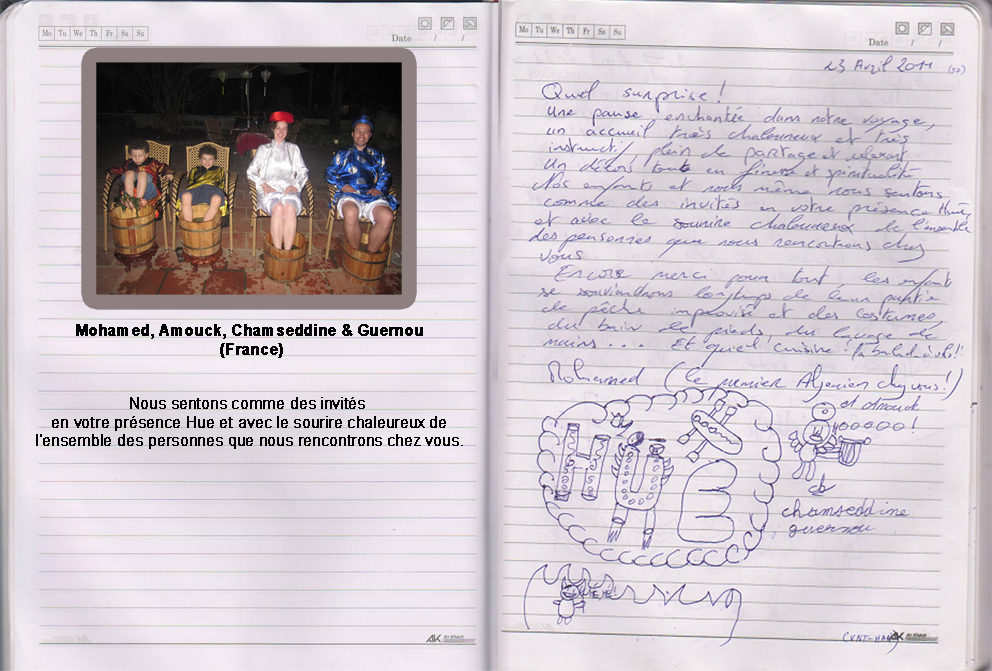 Mo Tu We Th Fr Sa Su
Date / /
Mohamed, Amouck, Chamseddine & Guernou
(France)
Nous sentons comme des invités
en votre présence Hue et avec le sourire chaleureux de
l'ensemble des personnes que nous rencontrons chez vous.
AK An Khánh
Mo Tu We Th Fr Sa Su
Date / /
23 Avril 2011
Quel surprise !
Une pause enchantée dans notre voyage,
un accueil très chaleureux et très
instructif, plein de partage et relaxant
Un décors tout en finesse et spiritualité
Nos enfants et nous même nous sentons
comme des invités en votre présence
et avec le sourire chaleureux de l'ensemble
des personnes que nous rencontrons chez
vous.
Encore merci pour tout, les enfants
se souviendrons longtemps de leur partie
de pêche improvisé et des costumes,
du bain de pieds, du lavage de
mains... Et quel cuisine !
Mohamed (le premier Algerien chez vous !)
et Amouck
HUE
chamseddine
guernou
AK An Khánh